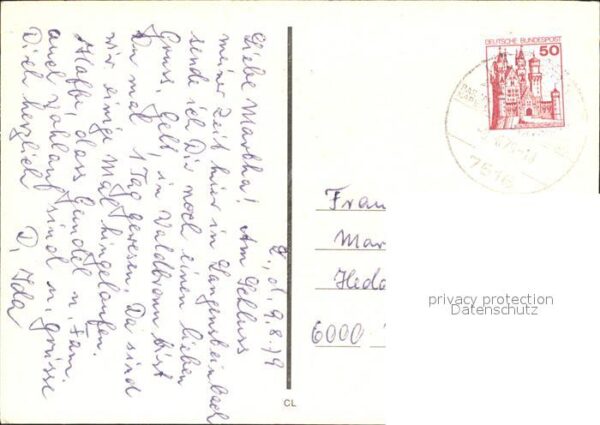 L., d. 9.8.79
Liebe Martha! Am Schluss
meiner Zeit hier in Langensteinbach
sende ich Dir noch einen lieben
Gruss. Gelt, in Waldbronn bist
Du mal 1 Tag gewesen. Da sind
wir einige mal hingelaufen.
Hoffe, dass Gundel u. Fam.
auch wohlauf sind u. grüsse
Dich herzlich
D. Ida
CL
DEUTSCHE BUNDESPOST
50
7516
Frau
Mar
Hedd
6000
privacy protection
Datenschutz